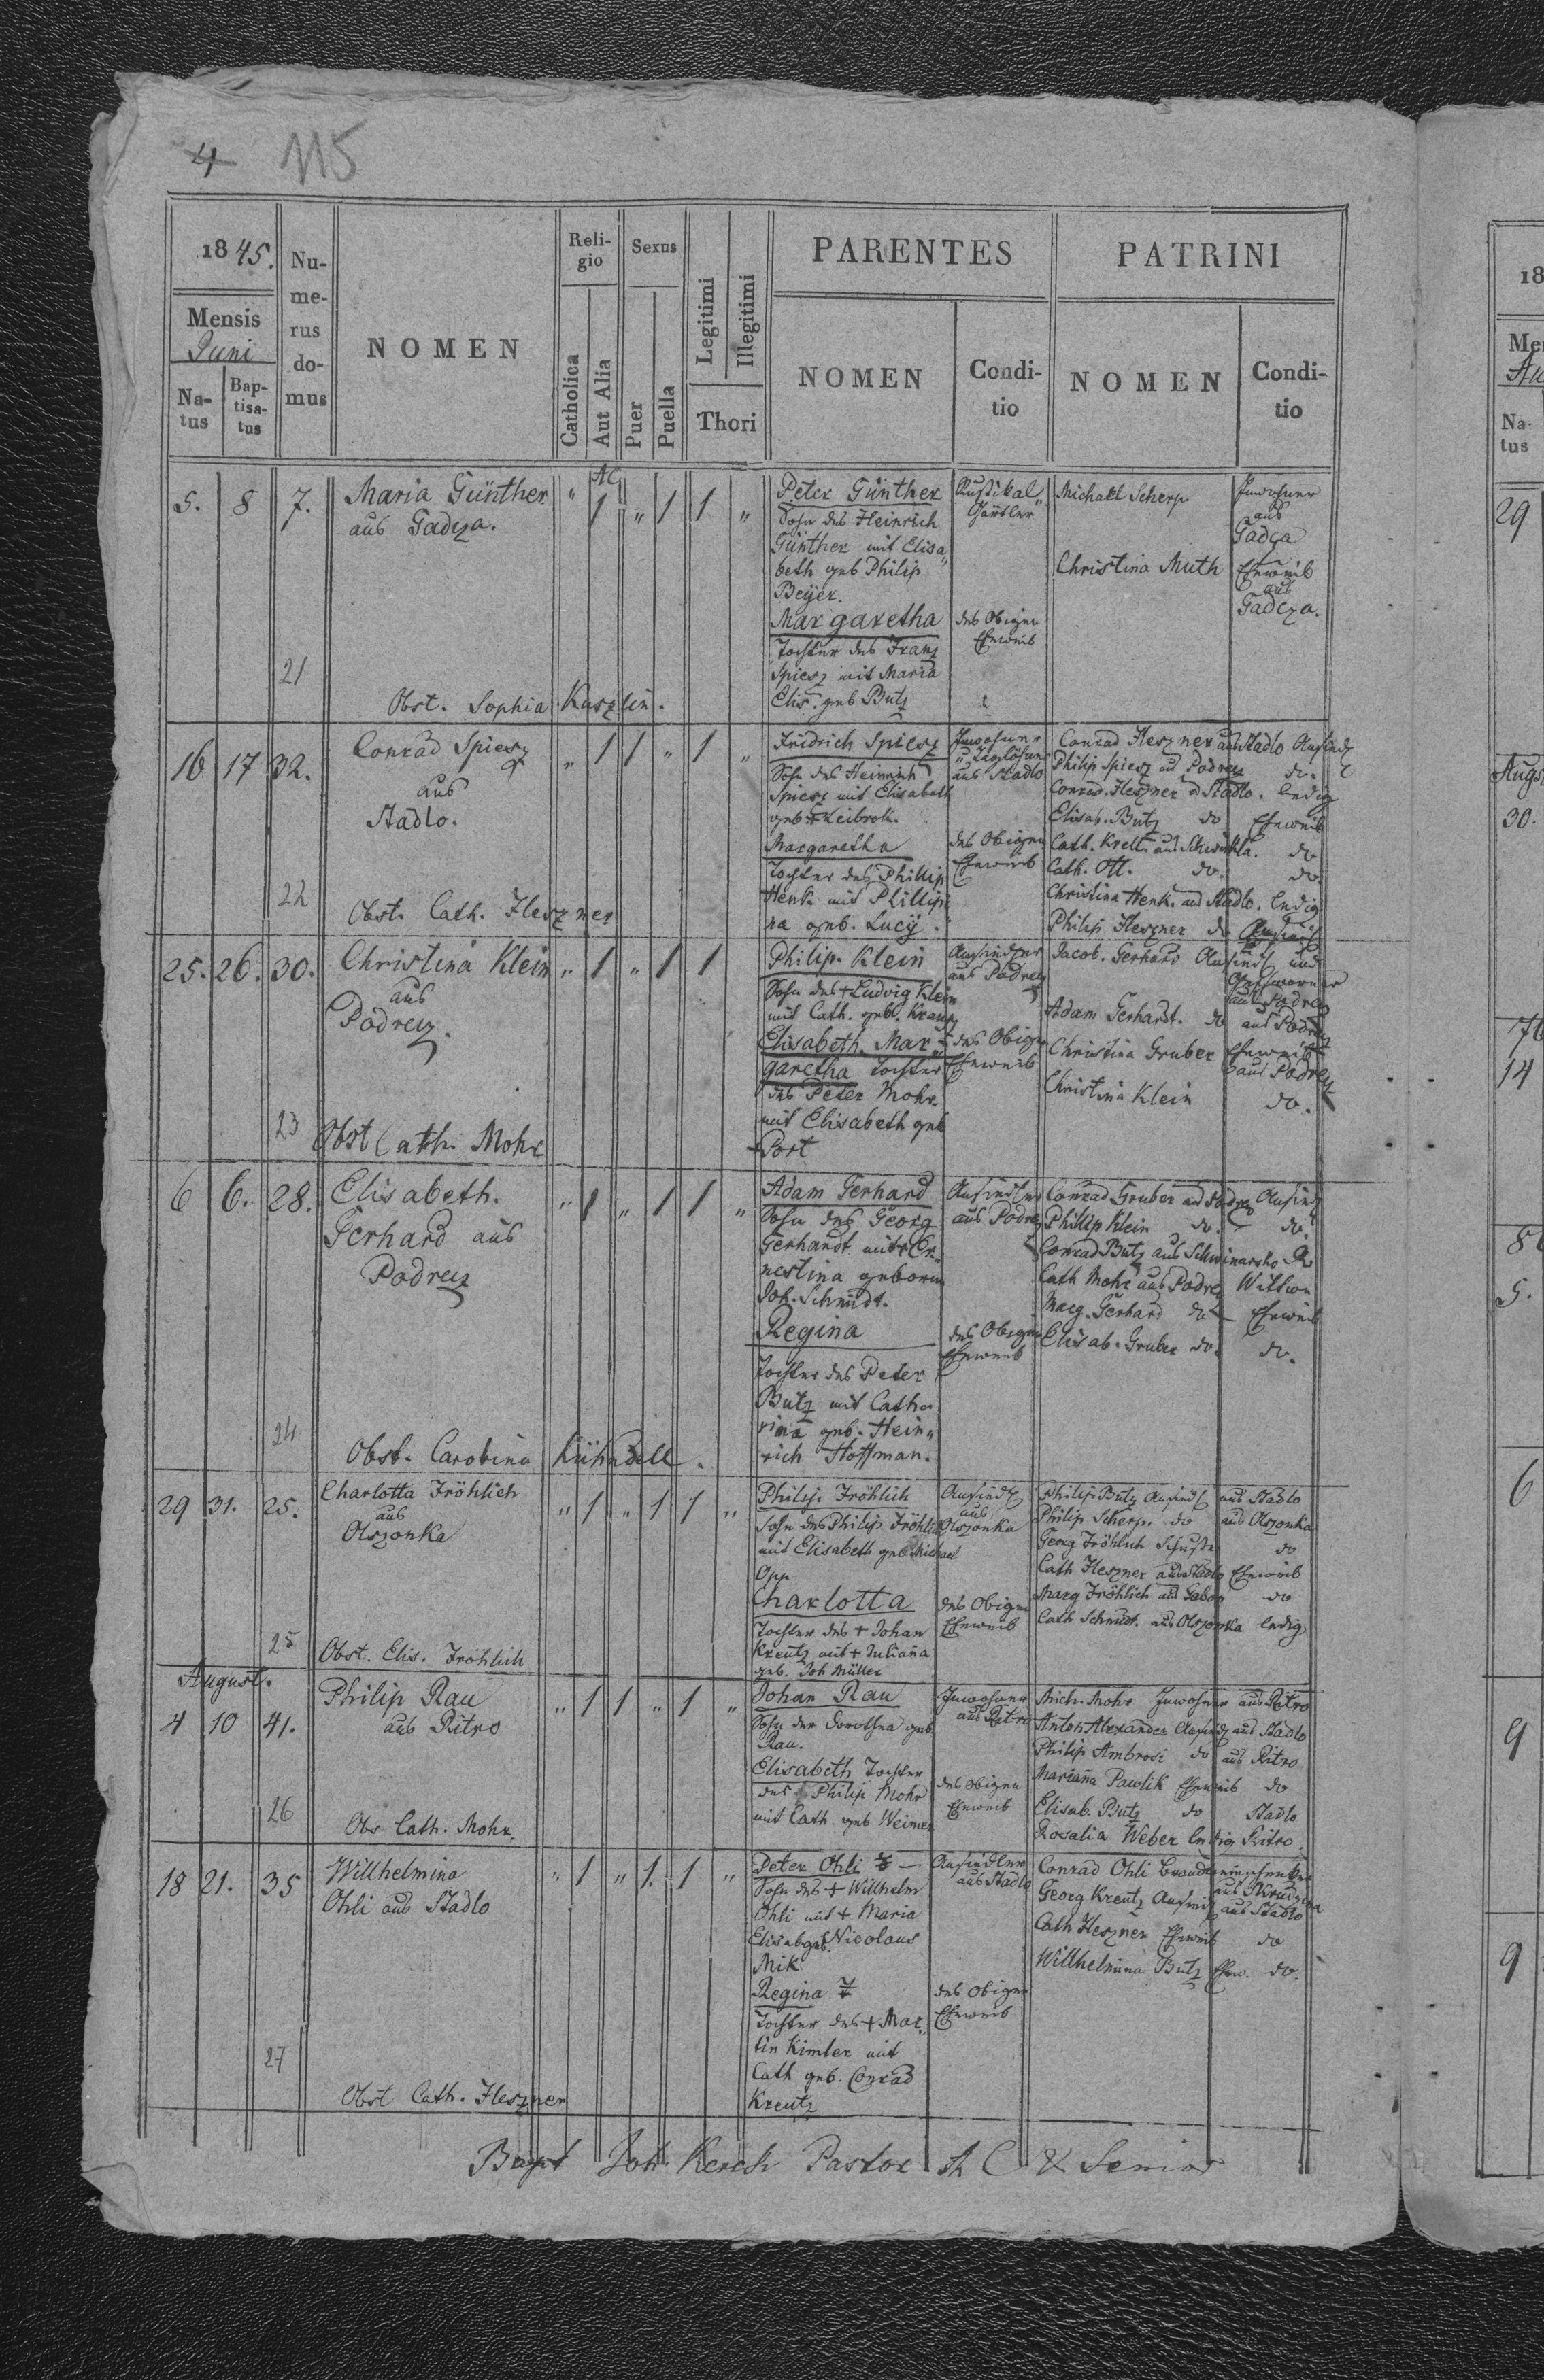 4 115
1845.
Mensis
Juni
Na-
tus
Bap-
tisa-
tus
Nu-
me-
rus
do-
mus
NOMEN
Reli-
gio
Catholica
Aut Alia
Sexus
Puer
Puella
Legitimi
Illegitimi
Thori
PARENTES
NOMEN
Condi-
tio
PATRINI
NOMEN
Condi-
tio
5. 8 7.
Maria Günther
aus Gadcza.
" AC 1 " 1 1 "
Peter Günther
Sohn des Heinrich
Günther mit Elisa„
beth geb Philip
Beÿer.
Margaretha
Tochter des Franz
Spiesz mit Maria
Elis. geb Butz
Rustikal„
Gärtler
des Obigen
Eheweib
Michael Scherp
Inwohner
aus
Gadcza
Christina Muth
Eheweib
aus
Gadcza.
21
Obst. Sophia Kaszlin.
16 17 32.
Conrad Spiesz
aus
Stadlo.
„ 1 1 " 1 "
Fridrich Spiesz
Sohn des Heinrich
Spiesz mit Elisabeth
geb + Leibrok.
Margaretha
Tochter des Phillip
Henk mit Phillipi
na geb. Lucÿ.
Inwohner
aus Stadlo
des Obigen
Eheweib
Conrad Heszner aus Stadlo Ansiedl
Philip Spiesz aus Podrez do.
Conrad Heszner a Stadlo. ledig
Elisab. Butz do Eheweib
Cath. Krell. aus Schwirkla. do
Cath. Ott. do. do.
Christina Henk. aus Stadlo. ledig
Philip Heszner do Ansiedl
22
Obst. Cath. Heszner
25. 26. 30.
Christina Klein
aus
Podrez.
„ 1 „ 1 1
Philip Klein
Sohn des + Ludvig Klein
mit Cath. geb. Kraus
Elisabeth. Mar„
garetha Tochter
des Peter Mohr.
mit Elisabeth geb
+ Port
Ansiedler
aus Podrez
des Obigen
Eheweib
Jacob. Gerhard Ansiedl und
Geschworner
aus Podrez
Adam Gerhardt. do aus Podrez
Christina Gruber Eheweib
aus Podrez
Christina Klein do.
23
Obst Cath. Mohr
6 6. 28.
Elisabeth.
Gerhard aus
Podrez
„ 1 „ 1 1 „
Adam Gerhard
Sohn des Georg
Gerhardt mit + Er„
nestina geboren
Joh. Schmidt.
Regina
Tochter des Peter
Butz mit Catha
rina geb. Hein„
rich Hoffman.
Ansiedler
aus Podrez
des Obigen
Eheweib
Conrad Gruber aus Podrez Ansied
Philip Klein do. do.
Conrad Butz aus Schwinarsko do
Cath Mohr aus Podrez Wittwe
Marg. Gerhard do Eheweib
Elisab. Gruber do. do.
24
Obst. Carolina Kühndell.
29 31. 25.
Charlotta Fröhlich
aus
Olszonka
„ 1 „ 1 1 „
Philip Fröhlich
Sohn des Philip Fröhlich
mit Elisabeth geb Michael
Opp
Charlotta
Tochter des + Johan
Kreutz mit + Juliana
geb. Joh Müller
Ansiedl
aus
Olszonka
des Obigen
Eheweib
Philip Butz Ansiedl aus Stadlo
Philip Scherp. do aus Olszonka
Georg Fröhlich Schuster do
Cath Heszner aus Stadlo Eheweib
Marg Fröhlich aus Gabon do
Cath Schmidt. aus Olszonka ledig
25
Obst. Elis. Fröhlich
August.
4 10 41.
Philip Rau
aus Ritro
„ 1 1 „ 1 „
Johan Rau
Sohn der Dorothea geb
Rau.
Elisabeth Tochter
des Philip Mohr
mit Cath geb Weimer
Inwohner
aus Ritro
des Obigen
Eheweib
Mich. Mohr Inwohner aus Ritro
Anton Alexander Ansiedl aus Stadlo
Philip Ambrosi do aus Ritro
Mariana Pawlik Eheweib do
Elisab. Butz do Stadlo
Rosalia Weber ledig Ritro.
26
Obs Cath. Mohr.
18 21. 35
Willhelmina
Ohli aus Stadlo
„ 1 „ 1. 1 „
Peter Ohli
Sohn des + Willhelm
Ohli mit + Maria
Elisab geb. Nicolaus
Mik
Regina
Tochter des + Mar„
tin Kimler mit
Cath geb. Conrad
Kreutz
Ansiedler
aus Stadlo
des Obigen
Eheweib
Conrad Ohli
Georg Kreutz Ansiedl aus Stadlo
Cath Heszner Eheweib do
Willhelmina Butz Ehew. do.
27
Obst Cath. Heszner
Bapt Joh. Kerch Pastor A C & Senior
18
Na-
tus
29
30.
14
5.
6
9
9